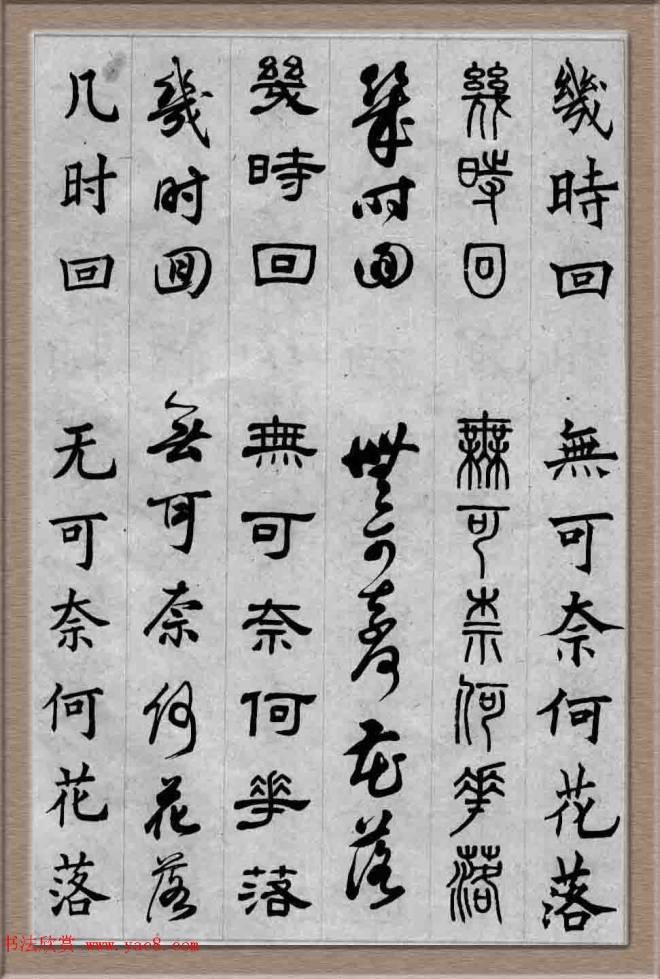 幾時回 無可奈何花落
幾時回 無可奈何華落
幾时回 無可奈何花落
幾時回 無可奈何華落
幾时回 無可奈何花落
几时回 无可奈何花落
书法欣赏 www.yac8.com